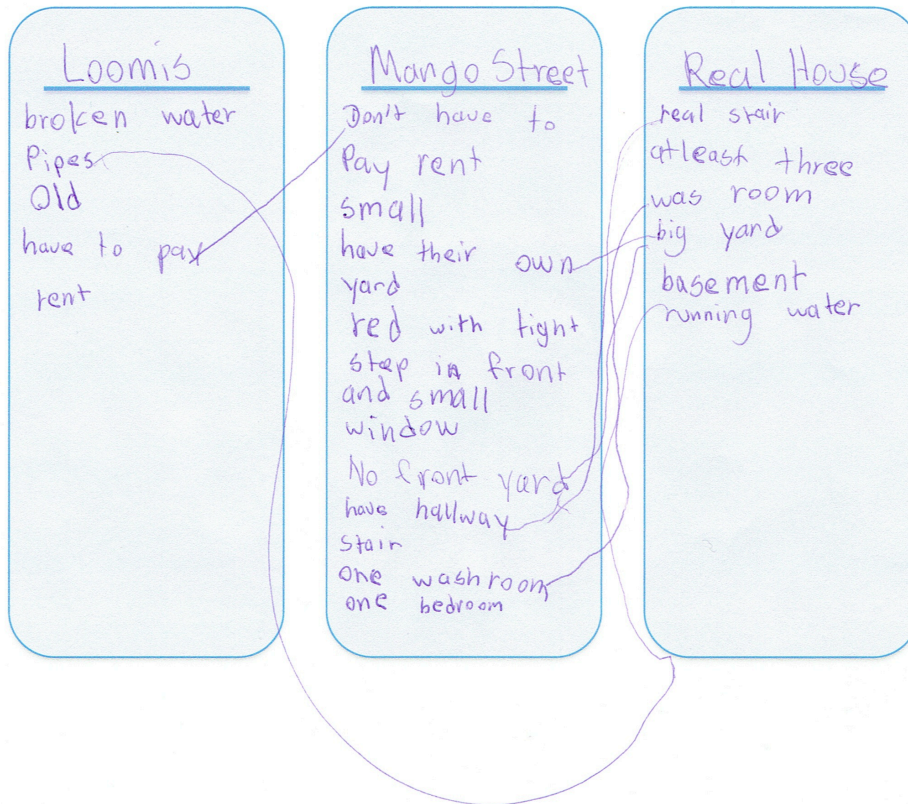 Loomis
broken water
Pipes
Old
have to pay
rent
Mango Street
Don't have to
Pay rent
small
have their own
yard
red with tight
step in front
and small
window
No front yard
have hallway
stair
one washroom
one bedroom
Real House
real stair
atleast three
was room
big yard
basement
running water